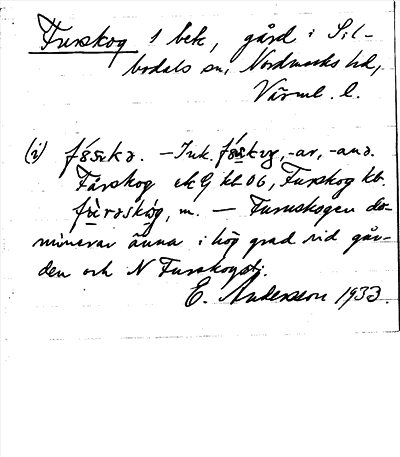 Furskog 1 bek, gård i Sil-
bodals sn, Nordmarks hd,
Värml. l.
(i) – Ink. -ar, -ana.
Fårskog Furskog kb.
m. — Furuskogen do-
minerar ännu i hög grad vid går-
den och N Furskogstj.
E. Andersson 1933.